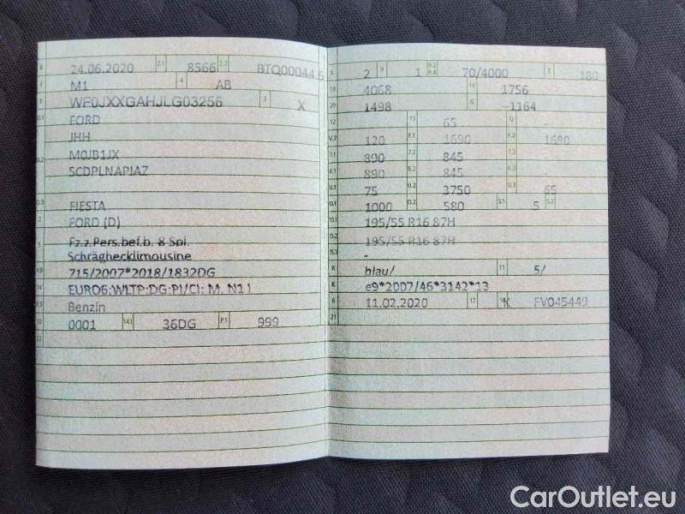 24.06.2020 8566 BTQ00044 6
M1 AB
WF0JXXGAHJLG03256 X
FORD
JHH
M0JB1JX
5CDPLNAPJAZ
FIESTA
FORD (D)
Fz.z.Pers.bef.b. 8 Spl.
Schräghecklimousine
715/2007*2018/1832DG
EURO6;WLTP;DG;PI/CI; M, N1 I
Benzin
0001 36DG 999
2 1 70/4000 180
4068 1756
1498 -1164
65
120 1690 1690
890 845
890 845
75 3750 65
1000 580 5
195/55 R16 87H
195/55 R16 87H
-
blau/ 5/
e9*2007/46*3142*13
11.02.2020 K FV045449
CarOutlet.eu